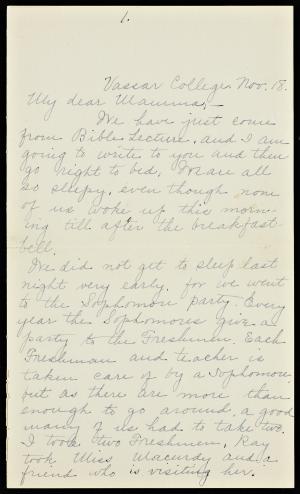 1.
Vassar College, Nov. 18.
My dear Mamma,—
We have just come
from Bible Lecture, and I am
going to write to you and then
go right to bed. We are all
so sleepy, even though none
of us woke up this morn-
ing till after the breakfast-
bell.
We did not get to sleep last
night very early, for we went
to the Sophomore party. Every
year the Sophomores give a
party to the Freshmen. Each
Freshman and teacher is
taken care of by a Sophomore,
but as there are more than
enough to go around, a good
many of us had to take two.
I took two Freshmen, Ray
took Miss Macurdy and a
friend who is visiting her.